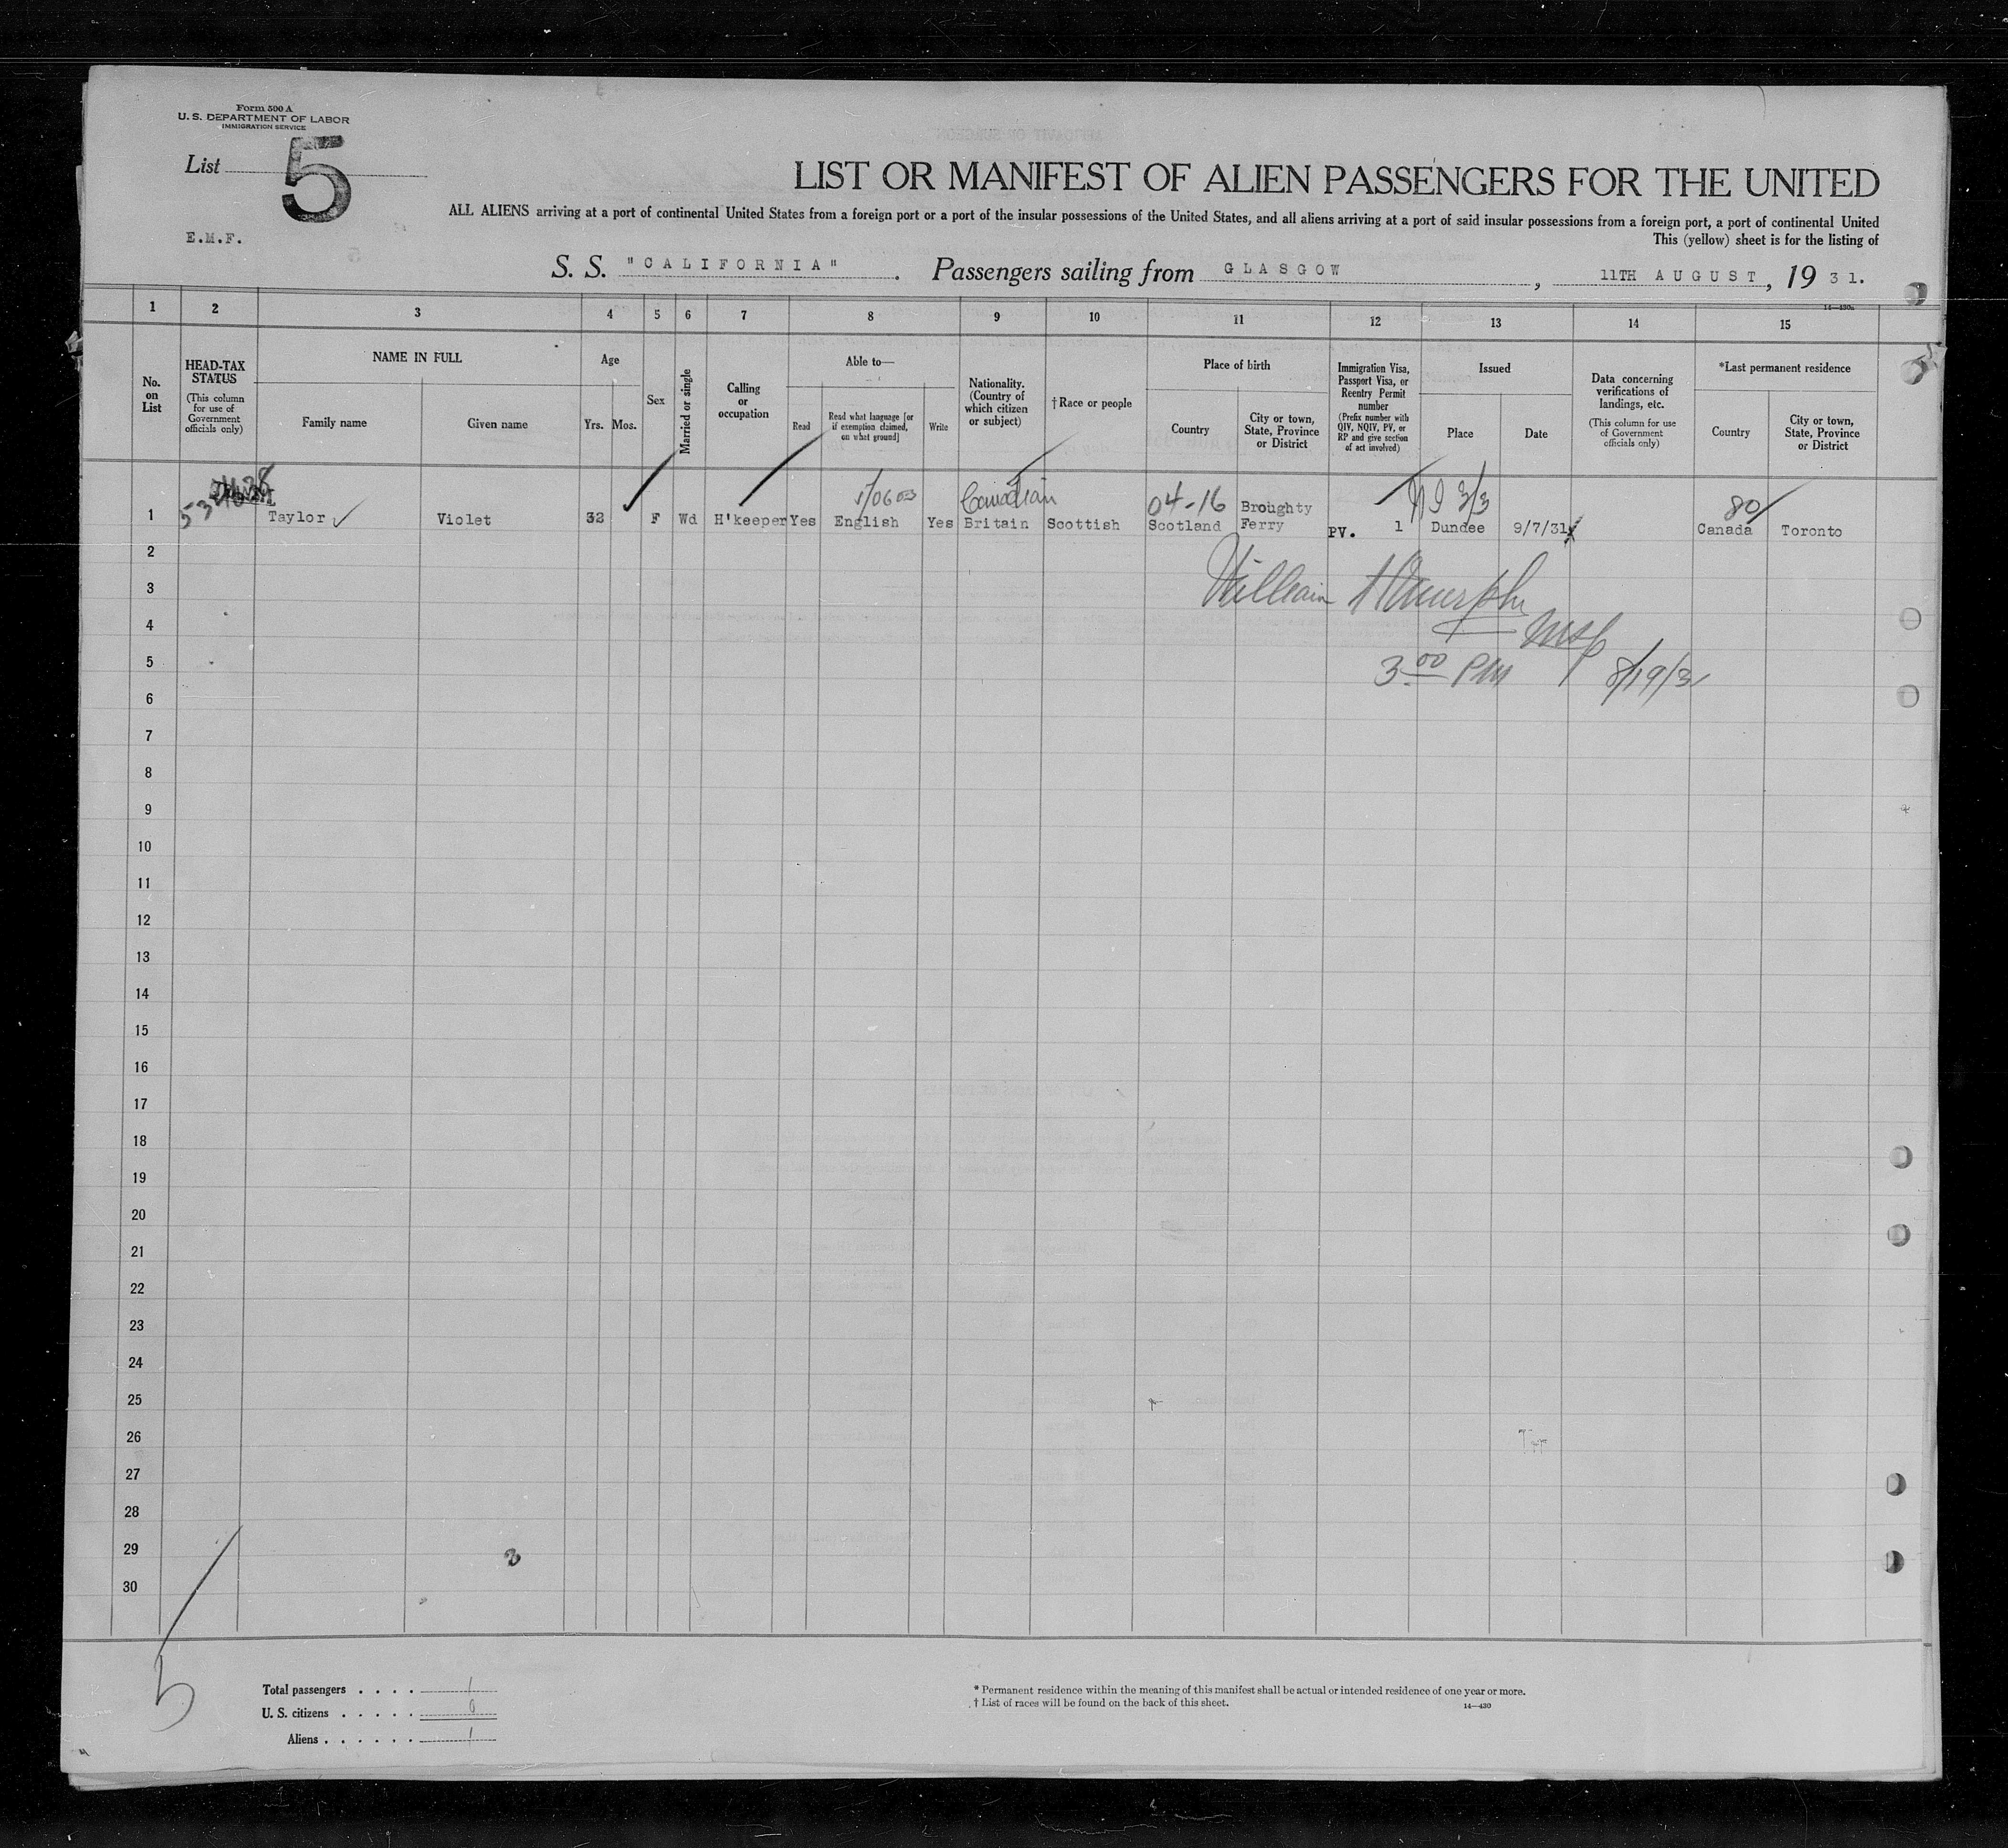 Form 500 A
U. S. DEPARTMENT OF LABOR
IMMIGRATION SERVICE
List 5
LIST OR MANIFEST OF ALIEN PASSENGERS FOR THE UNITED
ALL ALIENS arriving at a port of continental United States from a foreign port or a port of the insular possessions of the United States, and all aliens arriving at a port of said insular possessions from a foreign port, a port of continental United
E.M.F.
This (yellow) sheet is for the listing of
S. S. "CALIFORNIA" . Passengers sailing from GLASGOW , 11TH AUGUST, 19 31.
14—430a
1 2 3 4 5 6 7 8 9 10 11 12 13 14 15
No. on List
HEAD-TAX STATUS
(This column for use of Government officials only)
NAME IN FULL
Family name
Given name
Age
Yrs.
Mos.
Sex
Married or single
Calling or occupation
Able to—
Read
Read what language [or if exemption claimed, on what ground]
Write
Nationality. (Country of which citizen or subject)
†Race or people
Place of birth
Country
City or town, State, Province or District
Immigration Visa, Passport Visa, or Reentry Permit number
(Prefix number with QIV, NQIV, PV, or RP and give section of act involved)
Issued
Place
Date
Data concerning verifications of landings, etc.
(This column for use of Government officials only)
*Last permanent residence
Country
City or town, State, Province or District
Canadian 04-16 3/3 80
1 Taylor Violet 32 F Wd H'keeper Yes English Yes Britain Scottish Scotland Broughty Ferry PV. 1 Dundee 9/7/31 Canada Toronto
2
3 William
4
5 3 00 PM 8/19/31
6
7
8
9
10
11
12
13
14
15
16
17
18
19
20
21
22
23
24
25
26
27
28
29
30
5
Total passengers . . . . 1
U. S. citizens . . . . . 0
Aliens . . . . . . 1
* Permanent residence within the meaning of this manifest shall be actual or intended residence of one year or more.
† List of races will be found on the back of this sheet.
14—430